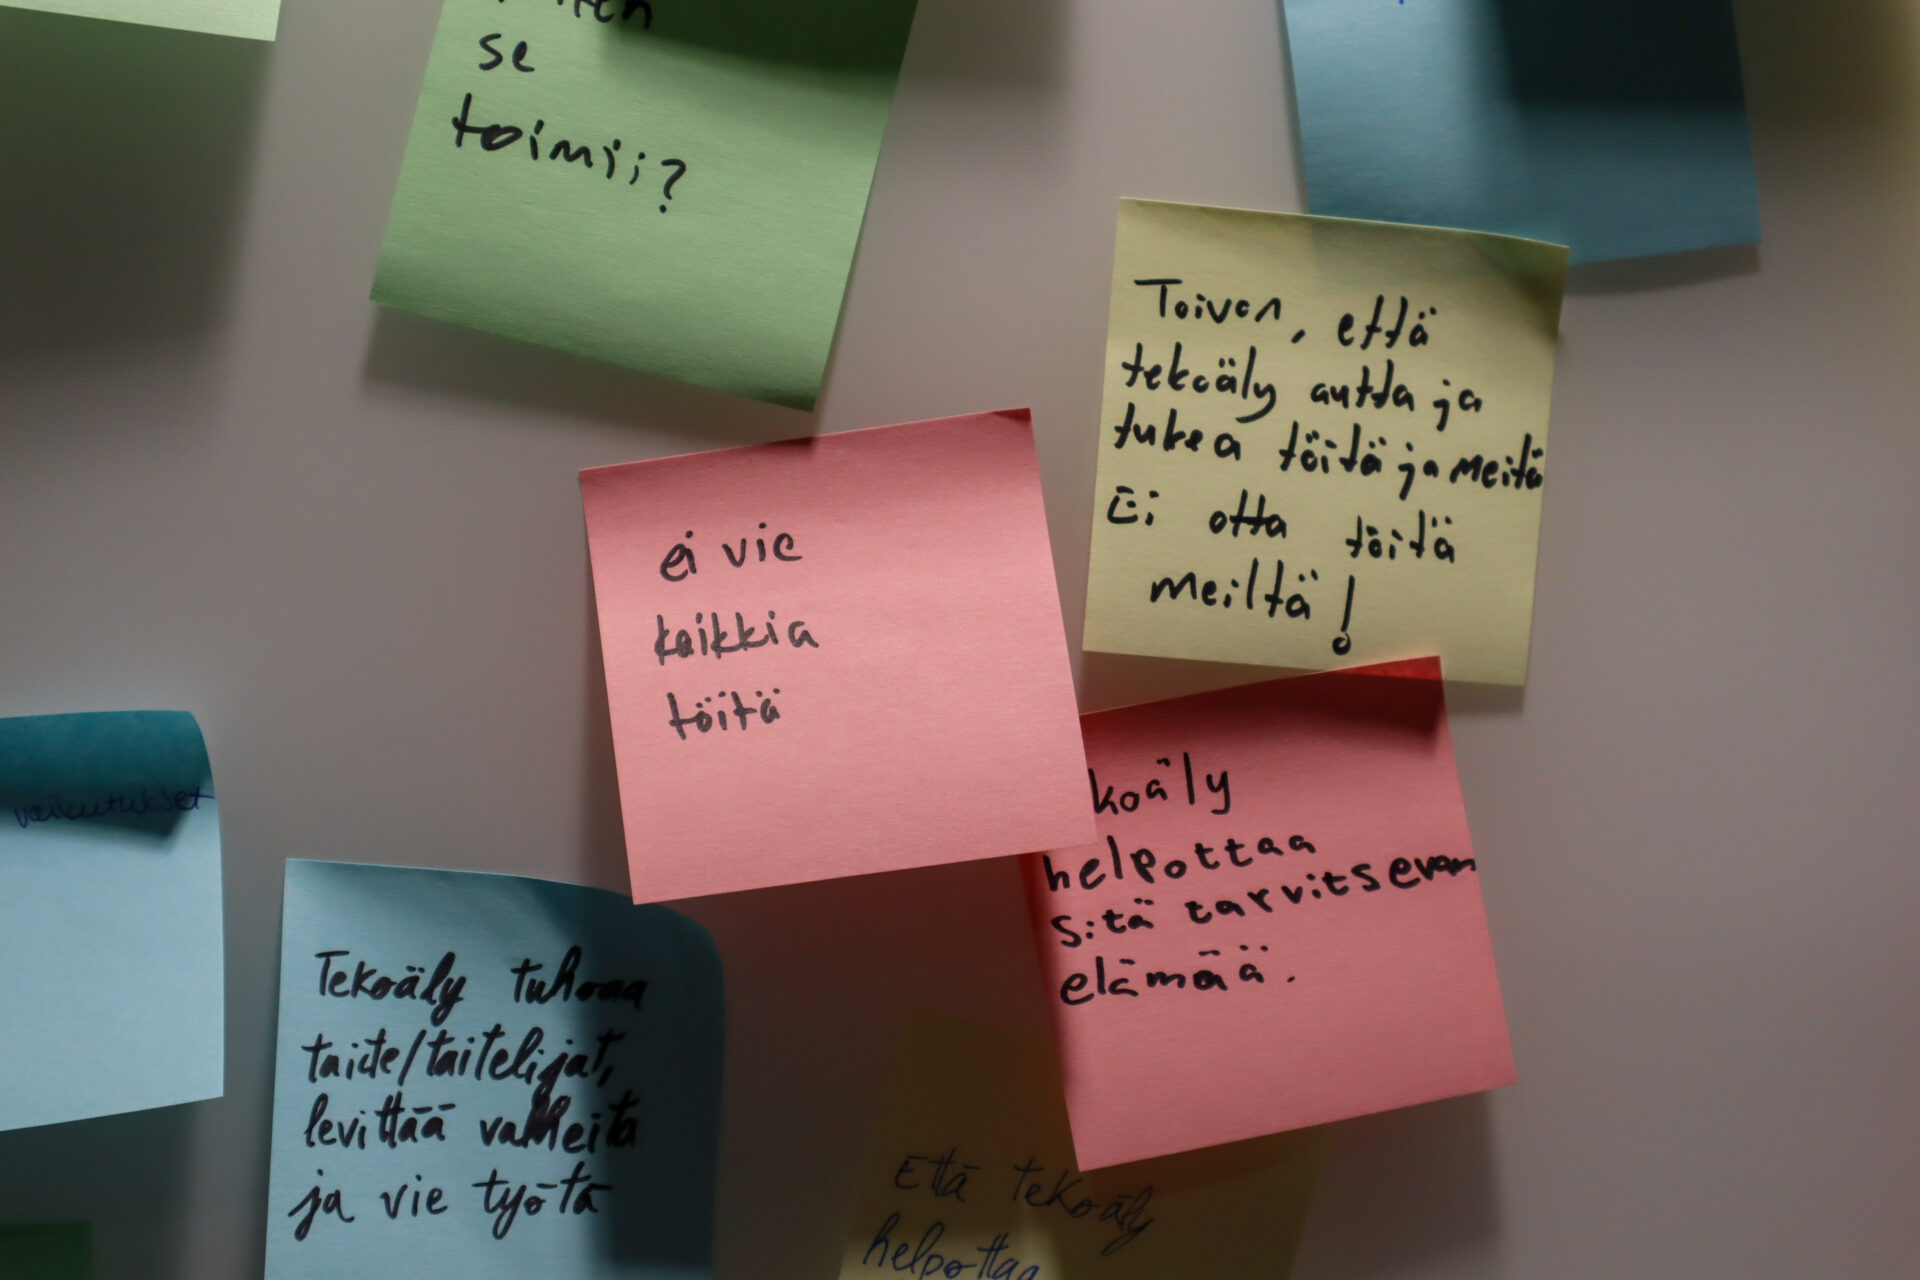 se
toimii?
Toivon, että
tekoäly autta ja
tukea töitä ja meitä
Ei otta töitä
meiltä!
ei vie
kaikkia
töitä
koäly
helpottaa
sitä tarvitsevan
elämää.
vaikutukset
Tekoäly tuhoaa
taide/taitelijat,
levittää valheita
ja vie työtä
Että tekoäly
helpottaa